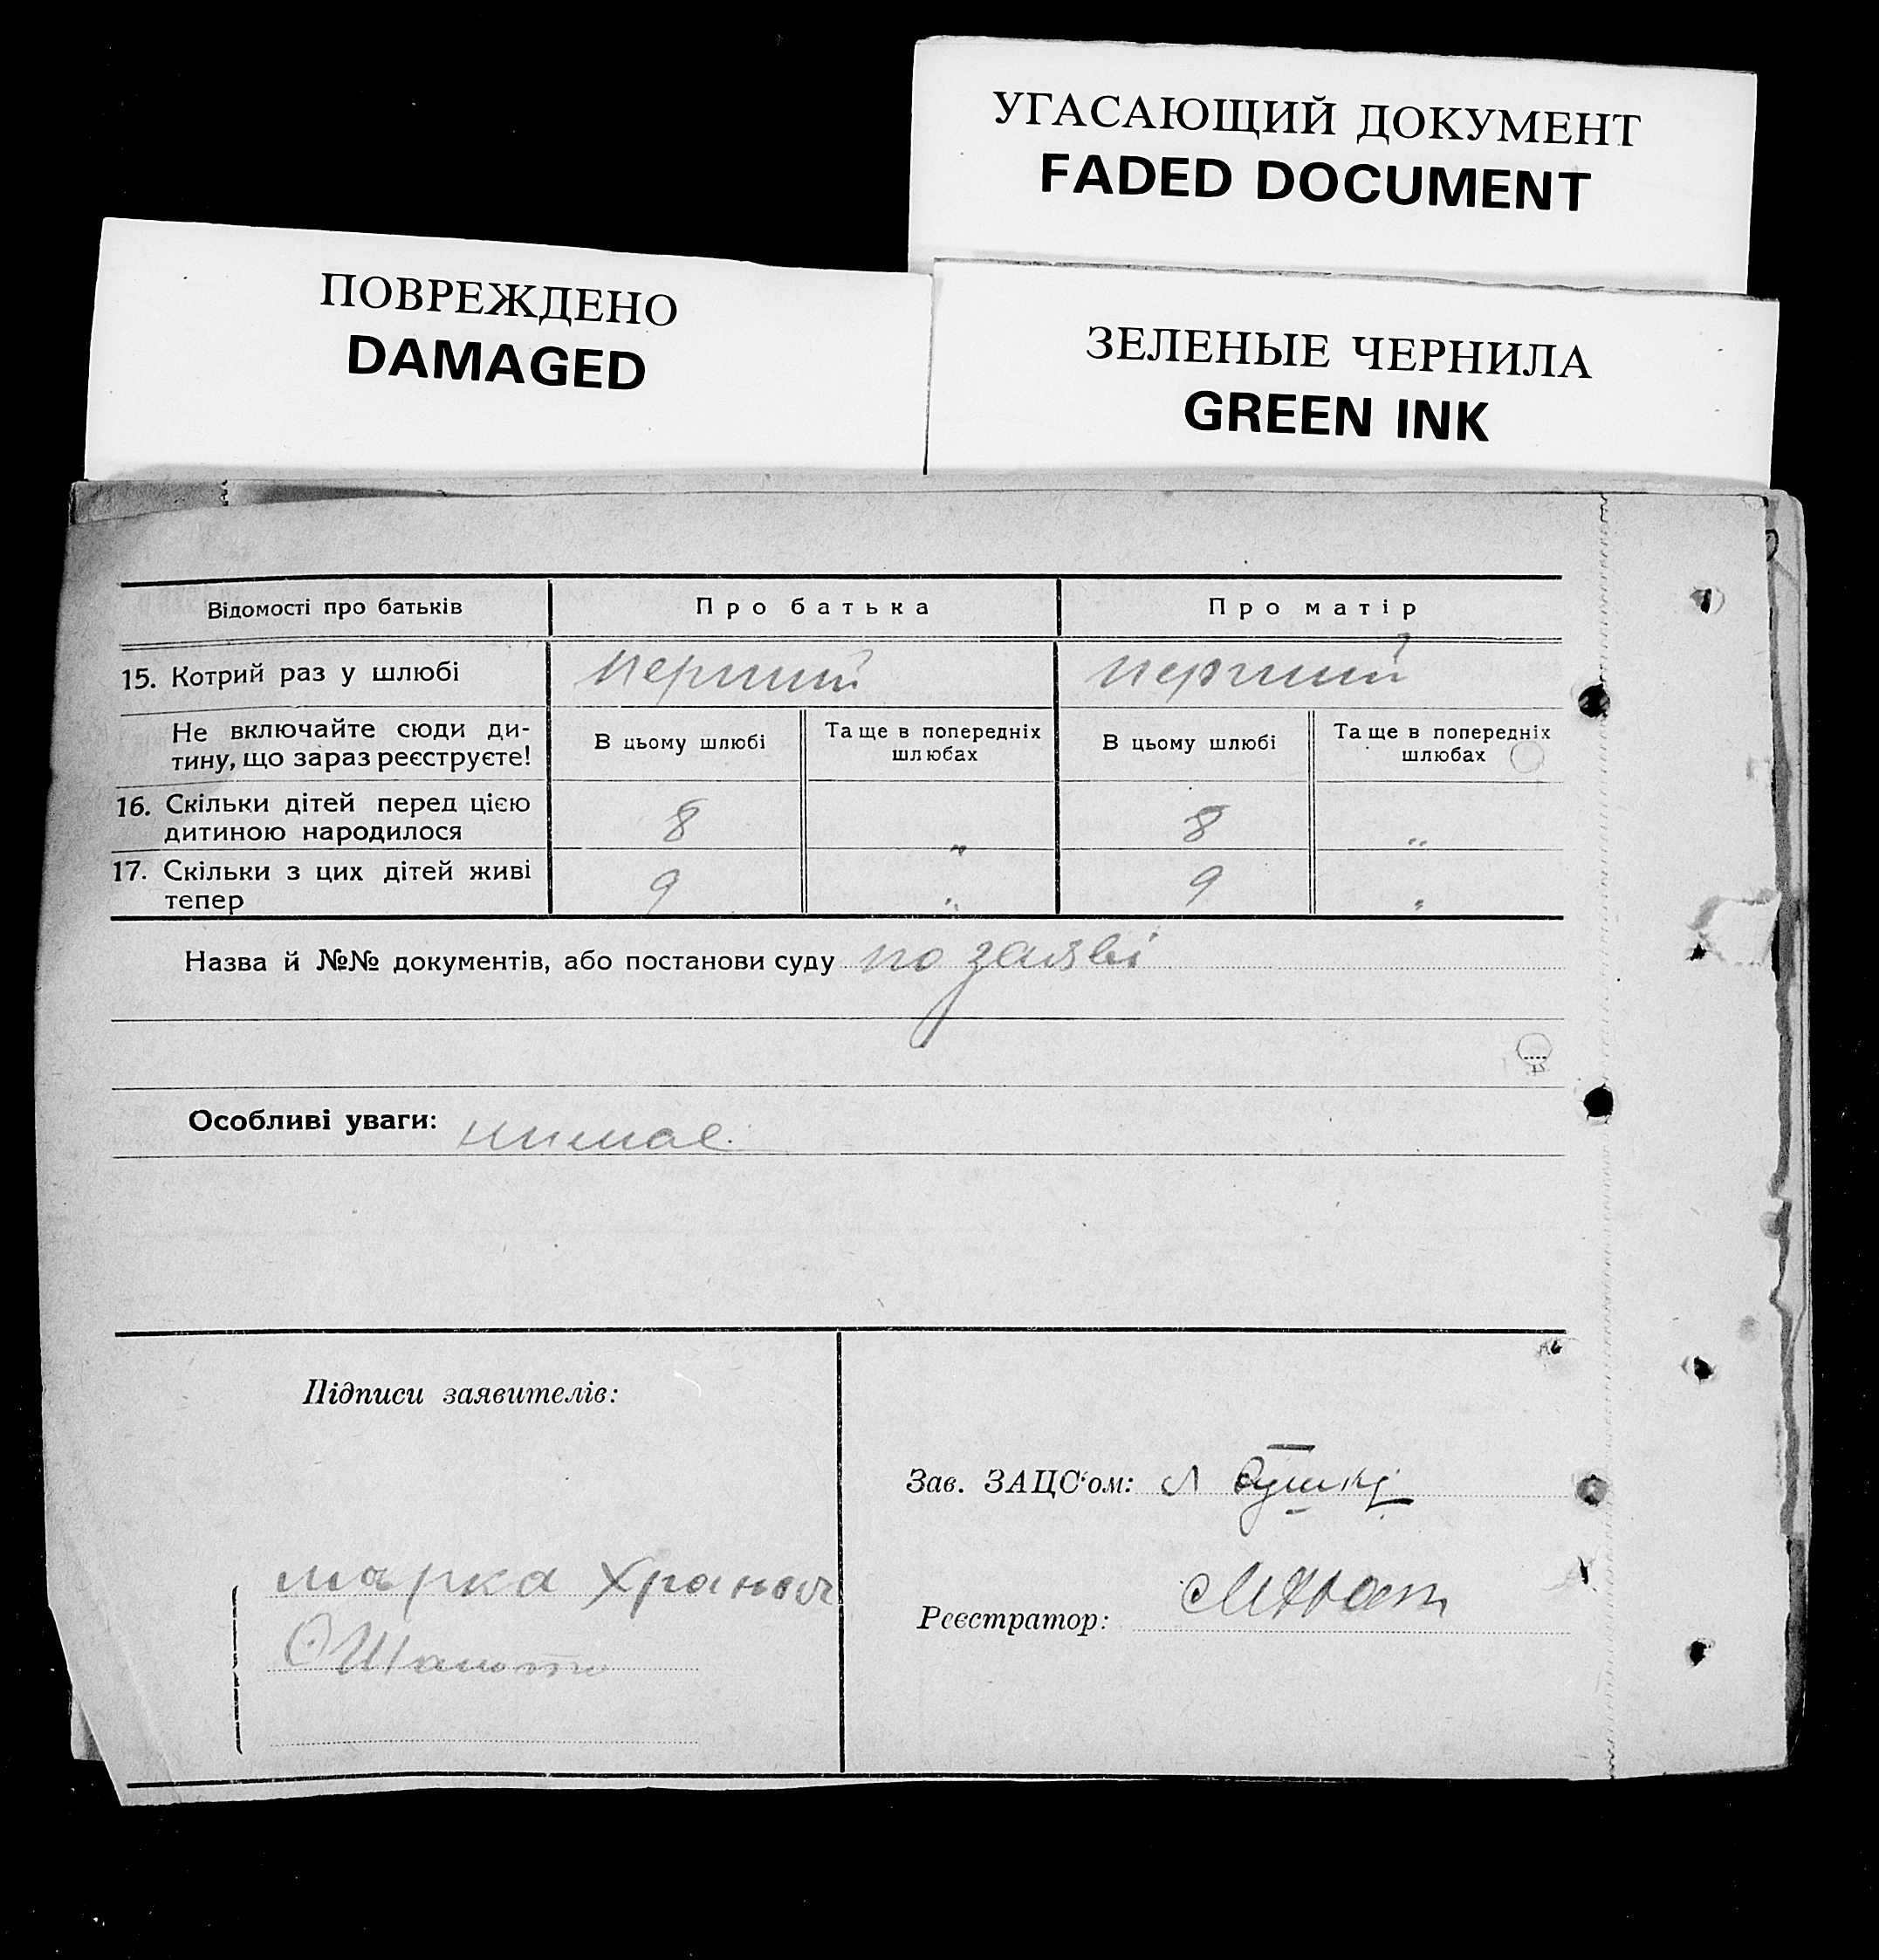 УГАСАЮЩИЙ ДОКУМЕНТ
FADED DOCUMENT
ПОВРЕЖДЕНО
DAMAGED
ЗЕЛЕНЫЕ ЧЕРНИЛА
GREEN INK
Відомості про батьків Про батька Про матір
15. Котрий раз у шлюбі перший перший
Не включайте сюди ди-
тину, що зараз реєструєте!
В цьому шлюбі
Та ще в попередніх
шлюбах
В цьому шлюбі
Та ще в попередніх
шлюбах
16. Скільки дітей перед цією
дитиною народилося 8 „ 8 „
17. Скільки з цих дітей живі
тепер 9 „ 9 „
Назва й №№ документів, або постанови суду по заяві
Особливі уваги: нимає
Підписи заявителів:
Зав. ЗАЦС'ом: Л
марка
Реєстратор: